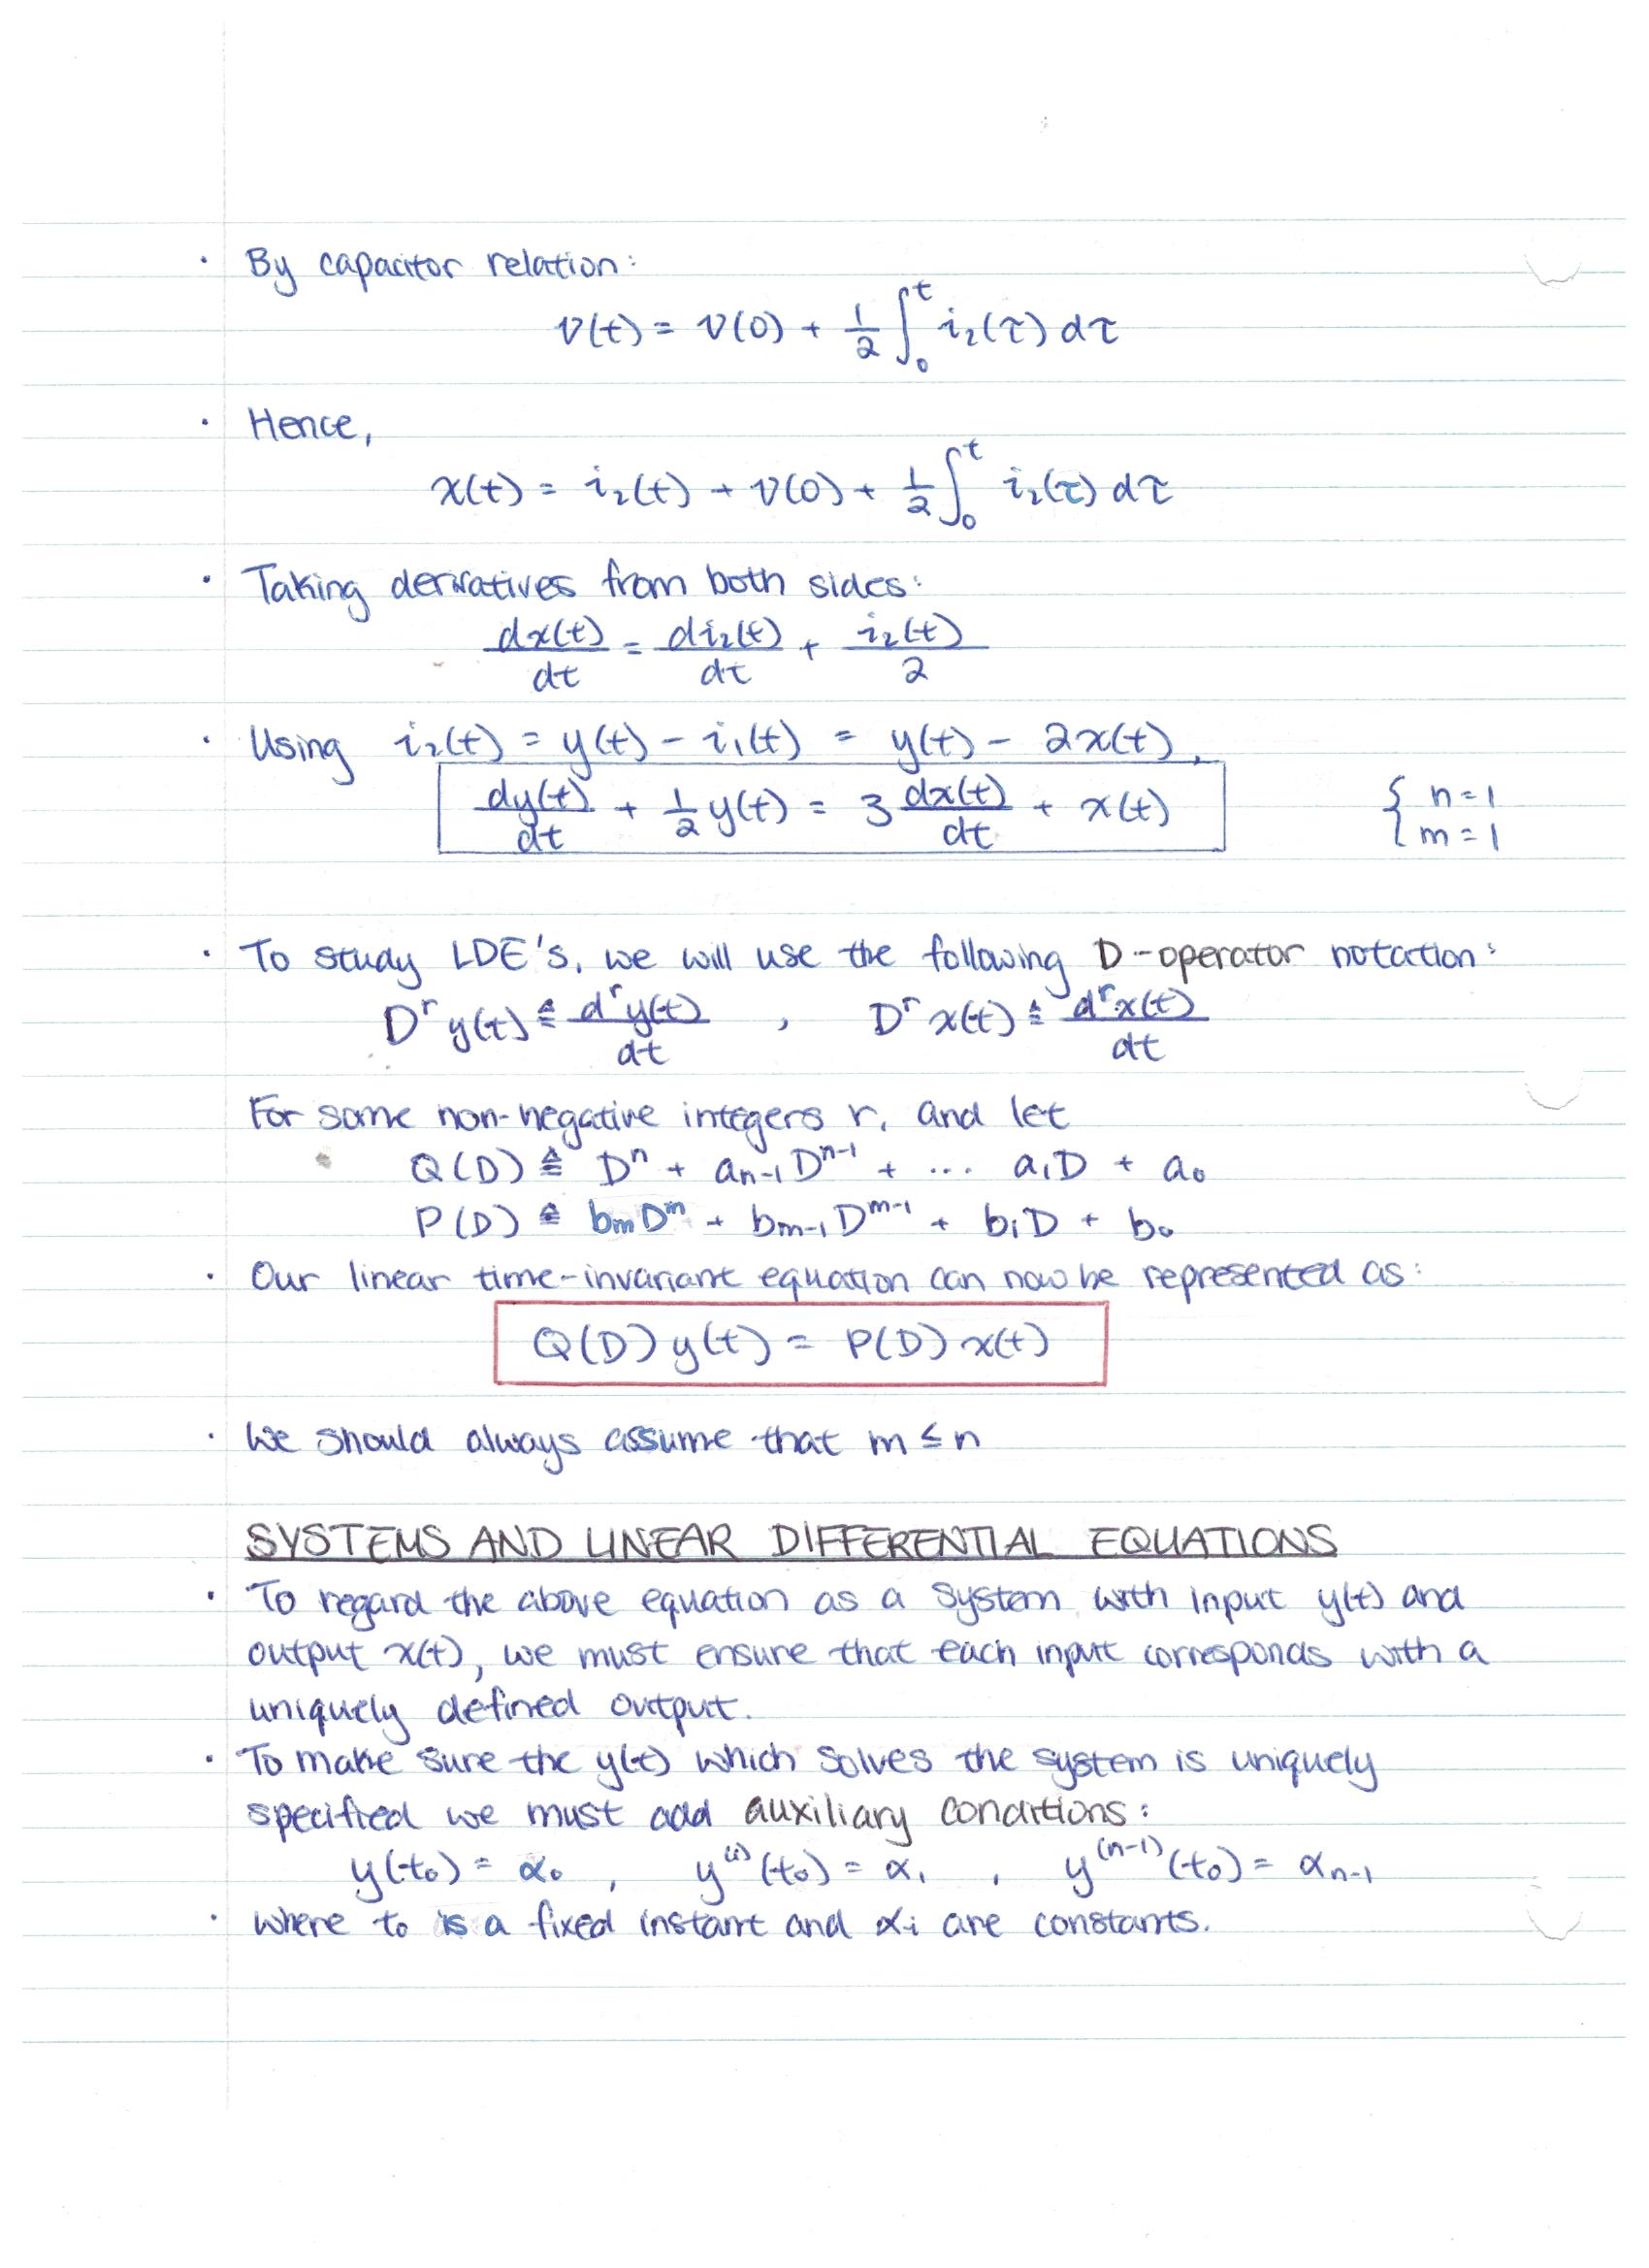 · By capacitor relation:
v(t) = v(0) + 1/2 ∫₀ᵗ i₂(τ) dτ
· Hence,
x(t) = i₂(t) + v(0) + 1/2 ∫₀ᵗ i₂(τ) dτ
· Taking derivatives from both sides:
dx(t)/dt = di₂(t)/dt + i₂(t)/2
· Using i₂(t) = y(t) - i₁(t) = y(t) - 2x(t),
dy(t)/dt + 1/2 y(t) = 3 dx(t)/dt + x(t) { n=1 m=1
· To study LDE's, we will use the following D-operator notation:
Dʳ y(t) ≜ dʳy(t)/dt , Dʳ x(t) ≜ dʳx(t)/dt
For some non-negative integers r, and let
Q(D) ≜ Dⁿ + aₙ₋₁Dⁿ⁻¹ + ... a₁D + a₀
P(D) ≜ bₘDᵐ + bₘ₋₁Dᵐ⁻¹ + b₁D + b₀
· Our linear time-invariant equation can now be represented as:
Q(D) y(t) = P(D) x(t)
· We should always assume that m ≤ n
SYSTEMS AND LINEAR DIFFERENTIAL EQUATIONS
· To regard the above equation as a system with input y(t) and
output x(t), we must ensure that each input corresponds with a
uniquely defined output.
· To make sure the y(t) which solves the system is uniquely
specified we must add auxiliary conditions:
y(t₀) = α₀ , y⁽¹⁾(t₀) = α₁ , y⁽ⁿ⁻¹⁾(t₀) = αₙ₋₁
· where t₀ is a fixed instant and αᵢ are constants.